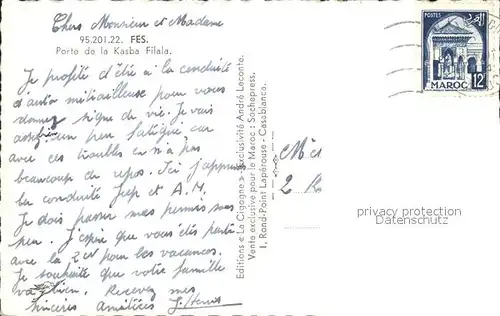 Chers Monsieur et Madame
95.201.22. FES.
Porte de la Kasba Filala.
Je profite d'être à la conduite
d'auto mitrailleuse pour vous
donner signe de vie. Je vais
assez bien un peu fatigué car
avec ces troubles on n'a pas
beaucoup de repos. Ici j'apprends
la conduite Jeep et A.M.
Je dois passer mes permis sous
peu. J'espère que vous êtes parti
avec la 2cv pour les vacances.
Je souhaite que votre famille
va bien. Recevez mes
sincères amitiées
Editions « La Cigogne » - Exclusivité André Leconte.
Vente exclusive pour le Maroc : Sochepress,
1, Rond-Point Lapérouse - Casablanca.
POSTES
MAROC
12
2 R
privacy protection
Datenschutz